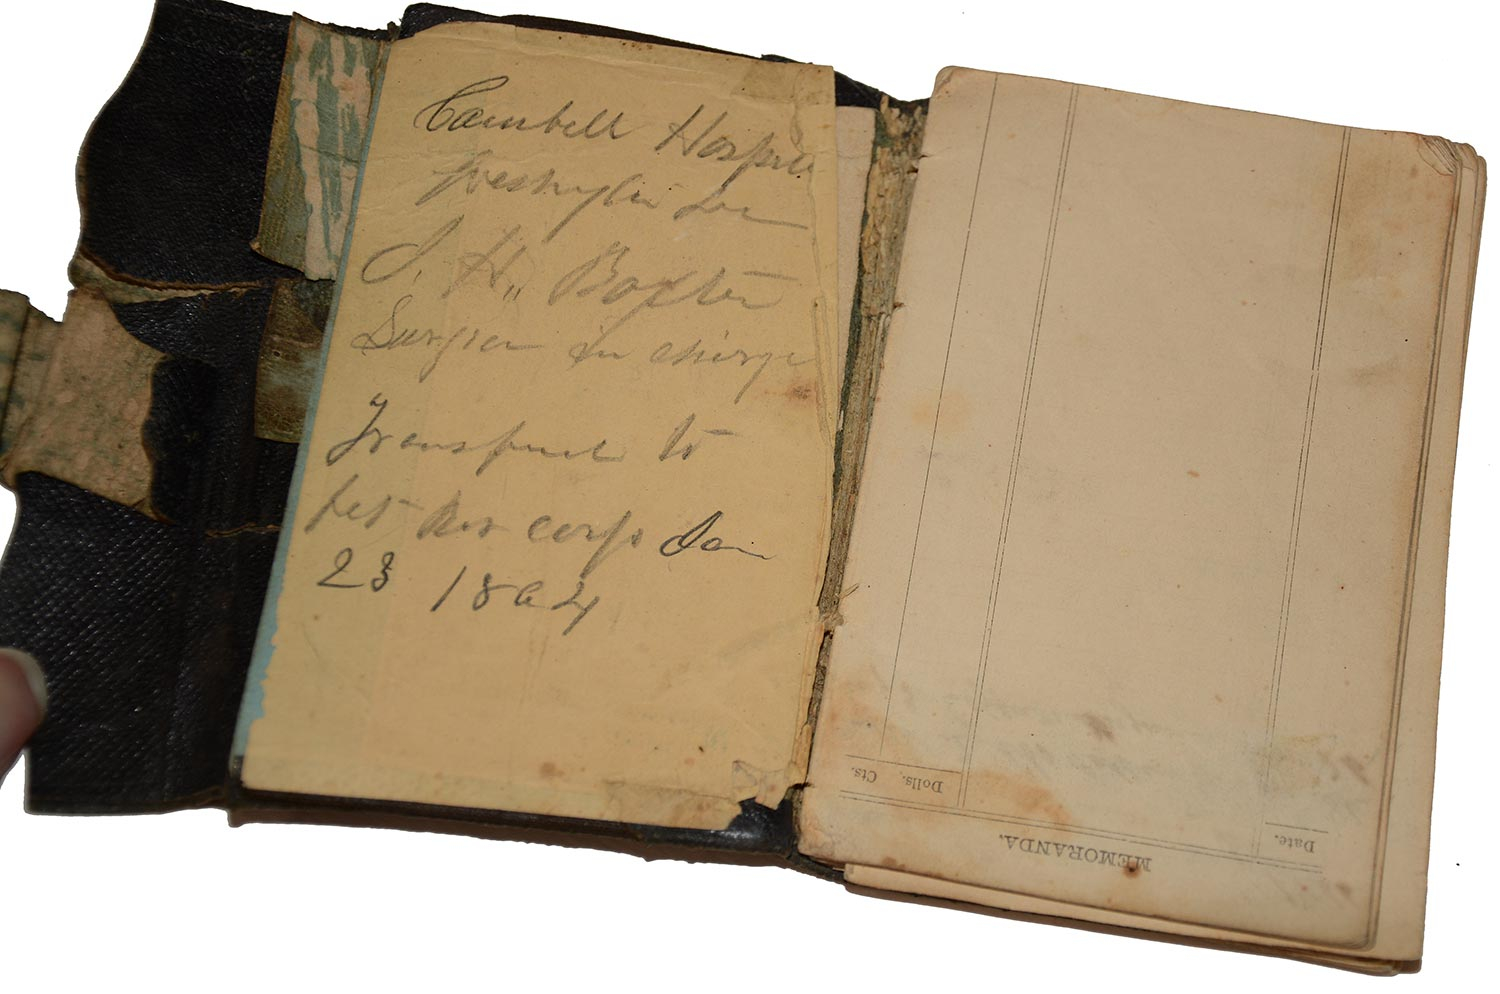 Cambell Hospital
Washington DC
J. H. Baxter
Surgeon in charge
Transfired to
Ret Rev corps Jan
23 1864
Cts.
Dolls.
Date.
MEMORANDA.